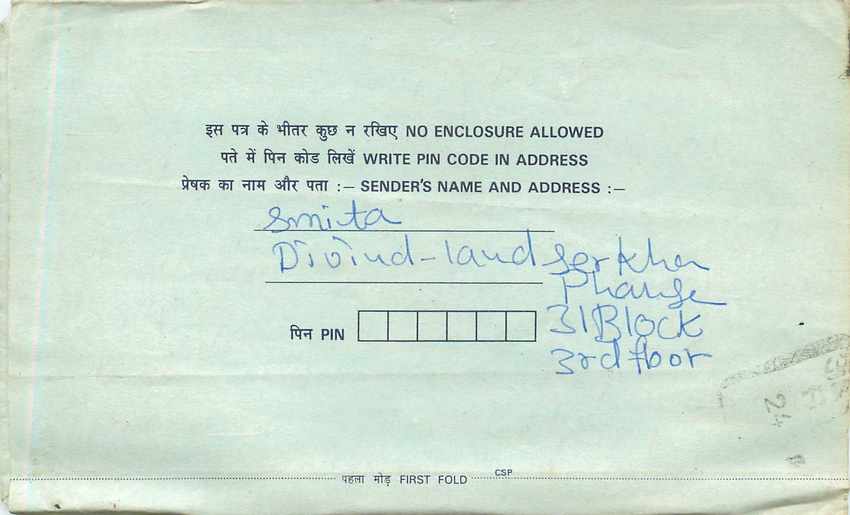 इस पत्र के भीतर कुछ न रखिए NO ENCLOSURE ALLOWED
पते में पिन कोड लिखें WRITE PIN CODE IN ADDRESS
प्रेषक का नाम और पता :— SENDER'S NAME AND ADDRESS :—
Smita
Divind-land serkha
Phanse
31Block
3rd floor
पिन PIN
पहला मोड़ FIRST FOLD CSP